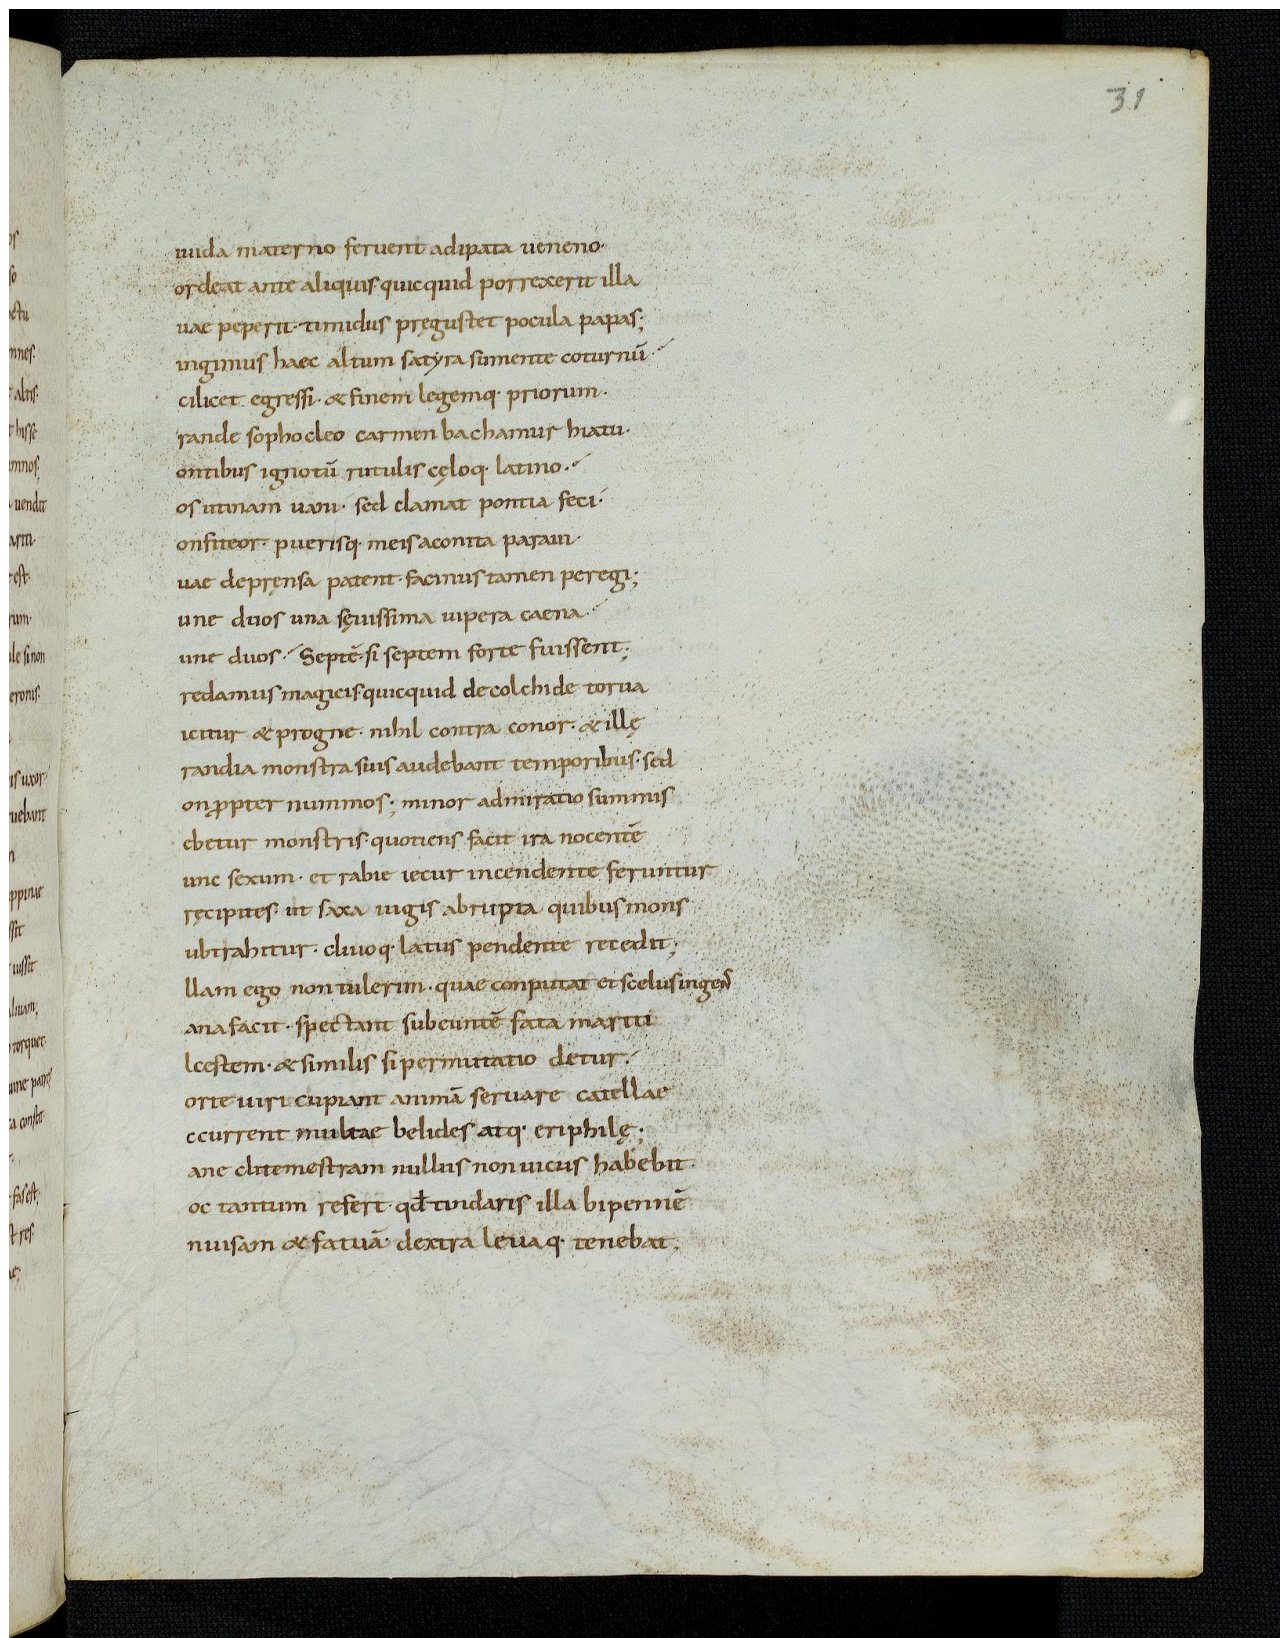 31
uida materno feruent adipata ueneno·
ordeat ante aliquis quicquid porrexerit illa
uae peperit· timidus pręgustet pocula papas;
ingimus haec altum satyra sumente coturnū·
cilicet egressi· & finem legemq· priorum·
rande sophocleo carmen bachamur hiatu·
ontibus ignotū rutulis cęloq· latino·
os utinam uani· sed clamat pontia feci·
onfiteor· puerisq· meis aconita paraui·
uae deprensa patent· facinus tamen peregi;
une duos una sęuissima uipera caena·
une duos· Septē· si septem forte fuissent;
redamus magicis quicquid de colchide torua
icitur & progne· nihil contra conor· & illę
randia monstra suis audebant temporibus· sed
on ꝓpter nummos; minor admiratio summis
ebetur monstris· quotiens facit ira nocentē
unc sexum· et rabie iecur incendente feruntur
ręcipites· ut saxa iugis abrupta quibus mons
ubtrahitur· cliuoq· latus pendente recedit;
llam ego non tulerim· quae conputat et scelus ingens
ana facit· spectant subeuntē fata mariti
lcestem· & similis si permutatio detur·
orte uiri cupiant animā seruare catellae
ccurrent multae belides atq· eriphilę;
ane clitemestram nullus non uicus habebit·
oc tantum refert· qđ tindaris illa bipennē
nuisam & fatuā· dextra leuaq· tenebat;